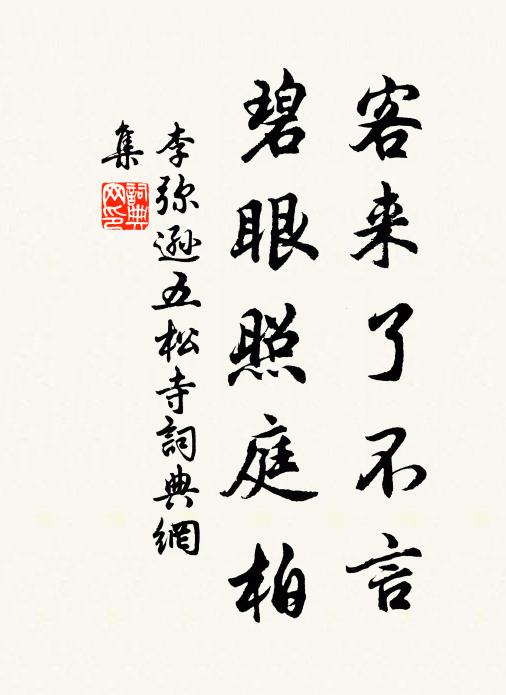 客来了不言
碧眼照庭柏
李弥遜五松寺詞典網
集
詞典网印